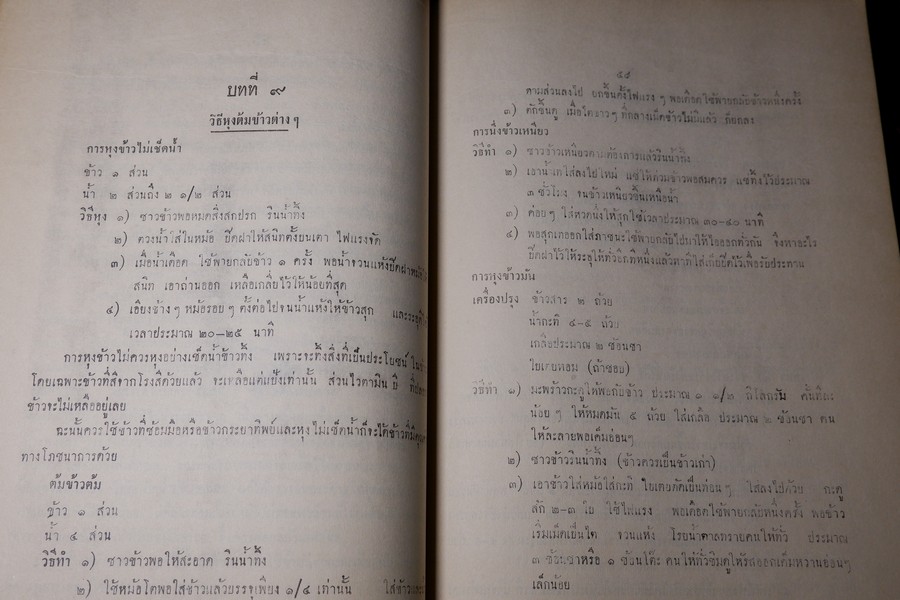 บทที่ ๙
วิธีหุงต้มข้าวต่าง ๆ
การหุงข้าวไม่เช็ดน้ำ
ข้าว ๑ ส่วน
น้ำ ๒ ส่วนถึง ๒ ๑/๒ ส่วน
วิธีหุง ๑) ซาวข้าวพอหมดสิ่งสกปรก รินน้ำทิ้ง
๒) ตวงน้ำใส่ในหม้อ ปิดฝาให้สนิทตั้งบนเตา ไฟแรงจัด
๓) เมื่อน้ำเดือด ใช้พายกลับข้าว ๑ ครั้ง พอน้ำจวนแห้งปิดฝาหม้อให้
สนิท เอาถ่านออก เหลือเกลี่ยไว้ให้น้อยที่สุด
๔) เอียงข้าง ๆ หม้อรอบ ๆ ตั้งต่อไปจนน้ำแห้งให้ข้าวสุก และระอุ
เวลาประมาณ ๒๐–๒๕ นาที
การหุงข้าวไม่ควรหุงอย่างเช็ดน้ำข้าวทิ้ง เพราะจะทิ้งสิ่งที่เป็นประโยชน์
โดยเฉพาะข้าวที่สีจากโรงสีด้วยแล้ว จะเหลือแต่แป้งเท่านั้น ส่วนไวตามิน บี
ข้าวจะไม่เหลืออยู่เลย
ฉะนั้นควรใช้ข้าวที่ซ้อมมือหรือข้าวกระยาทิพย์และหุงไม่เช็ดน้ำก็จะได้ข้าวที่มี
ทางโภชนาการด้วย
ต้มข้าวต้ม
ข้าว ๑ ส่วน
น้ำ ๔ ส่วน
วิธีทำ ๑) ซาวข้าวพอให้สะอาด รินน้ำทิ้ง
๒) ใช้หม้อโตพอใส่ข้าวแล้วบรรจุเพียง ๑/๔ เท่านั้น ใส่ข้าว
ตามส่วนลงไป ยกขึ้นตั้งไฟแรง ๆ พอเดือดใช้พายกลับข้าวหนึ่งครั้ง
๓) ตักขึ้นดู เมื่อไตขาว ๆ ที่กลางเม็ดข้าวไม่มีแล้ว ก็ยกลง
การนึ่งข้าวเหนียว
วิธีทำ ๑) ซาวข้าวเหนียวตามต้องการแล้วรินน้ำทิ้ง
๒) เอาน้ำใส่ลงไปใหม่ แช่ให้ท่วมข้าวพอสมควร แช่ทิ้งไว้ประมาณ
๓ ชั่วโมง จนข้าวเหนียวขึ้นเหนือน้ำ
๓) ค่อยๆ ใส่หวดนึ่งให้สุกใช้เวลาประมาณ ๓๐–๔๐ นาที
๔) พอสุกเทออกใส่ภาชนะใช้พายกลับไปมาให้ไอออกทั่วกัน จึงหาอะไร
ปิดฝาไว้ให้ระอุให้ทั่วอีกทีหนึ่งแล้ว
การหุงข้าวมัน
เครื่องปรุง ข้าวสาร ๒ ถ้วย
น้ำกะทิ ๔–๕ ถ้วย
เกลือประมาณ ๒ ช้อนชา
ใบเตยหอม (ถ้าชอบ)
วิธีทำ ๑) มะพร้าวกะดูให้พอกับข้าว ประมาณ ๑ ๑/๒ กิโลกรัม คั้นทีละ
น้อยๆ ให้หมดมัน ๕ ถ้วย ใส่เกลือ ประมาณ ๒ ช้อนชา คน
ให้ละลายพอเค็มอ่อนๆ
๒) ซาวข้าวรินน้ำทิ้ง (ข้าวควรเป็นข้าวเก่า)
๓) เอาข้าวใส่หม้อใส่กะทิ ใบเตยตัดเป็นท่อนๆ ใส่ลงไปด้วย กะดู
สัก ๒–๓ ใบ ใช้ไฟแรง พอเดือดใช้พายกลับหนึ่งครั้ง พอข้าว
เริ่มเม็ดเป็นไต จวนแห้ง โรยน้ำตาลทรายคนให้ทั่ว ประมาณ
๓ ช้อนชาหรือ ๑ ช้อนโต๊ะ คนให้ทั่วชิมดูให้รสออกเค็มหวานอ่อนๆ
เล็กน้อย